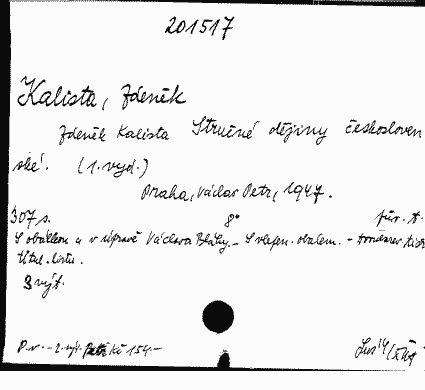 201517
Kalista, Zdeněk
Zdeněk Kalista Stručné dějiny českosloven
ské. (1. vyd.)
Praha, Václav Petr, 1947.
307 s. 8°
S obálkou a v úpravě Václava Bláhy. - S vlepen. obálkou. -
titul. listu.
3 výt.
P.v. - 2. výt. Kč 154.-